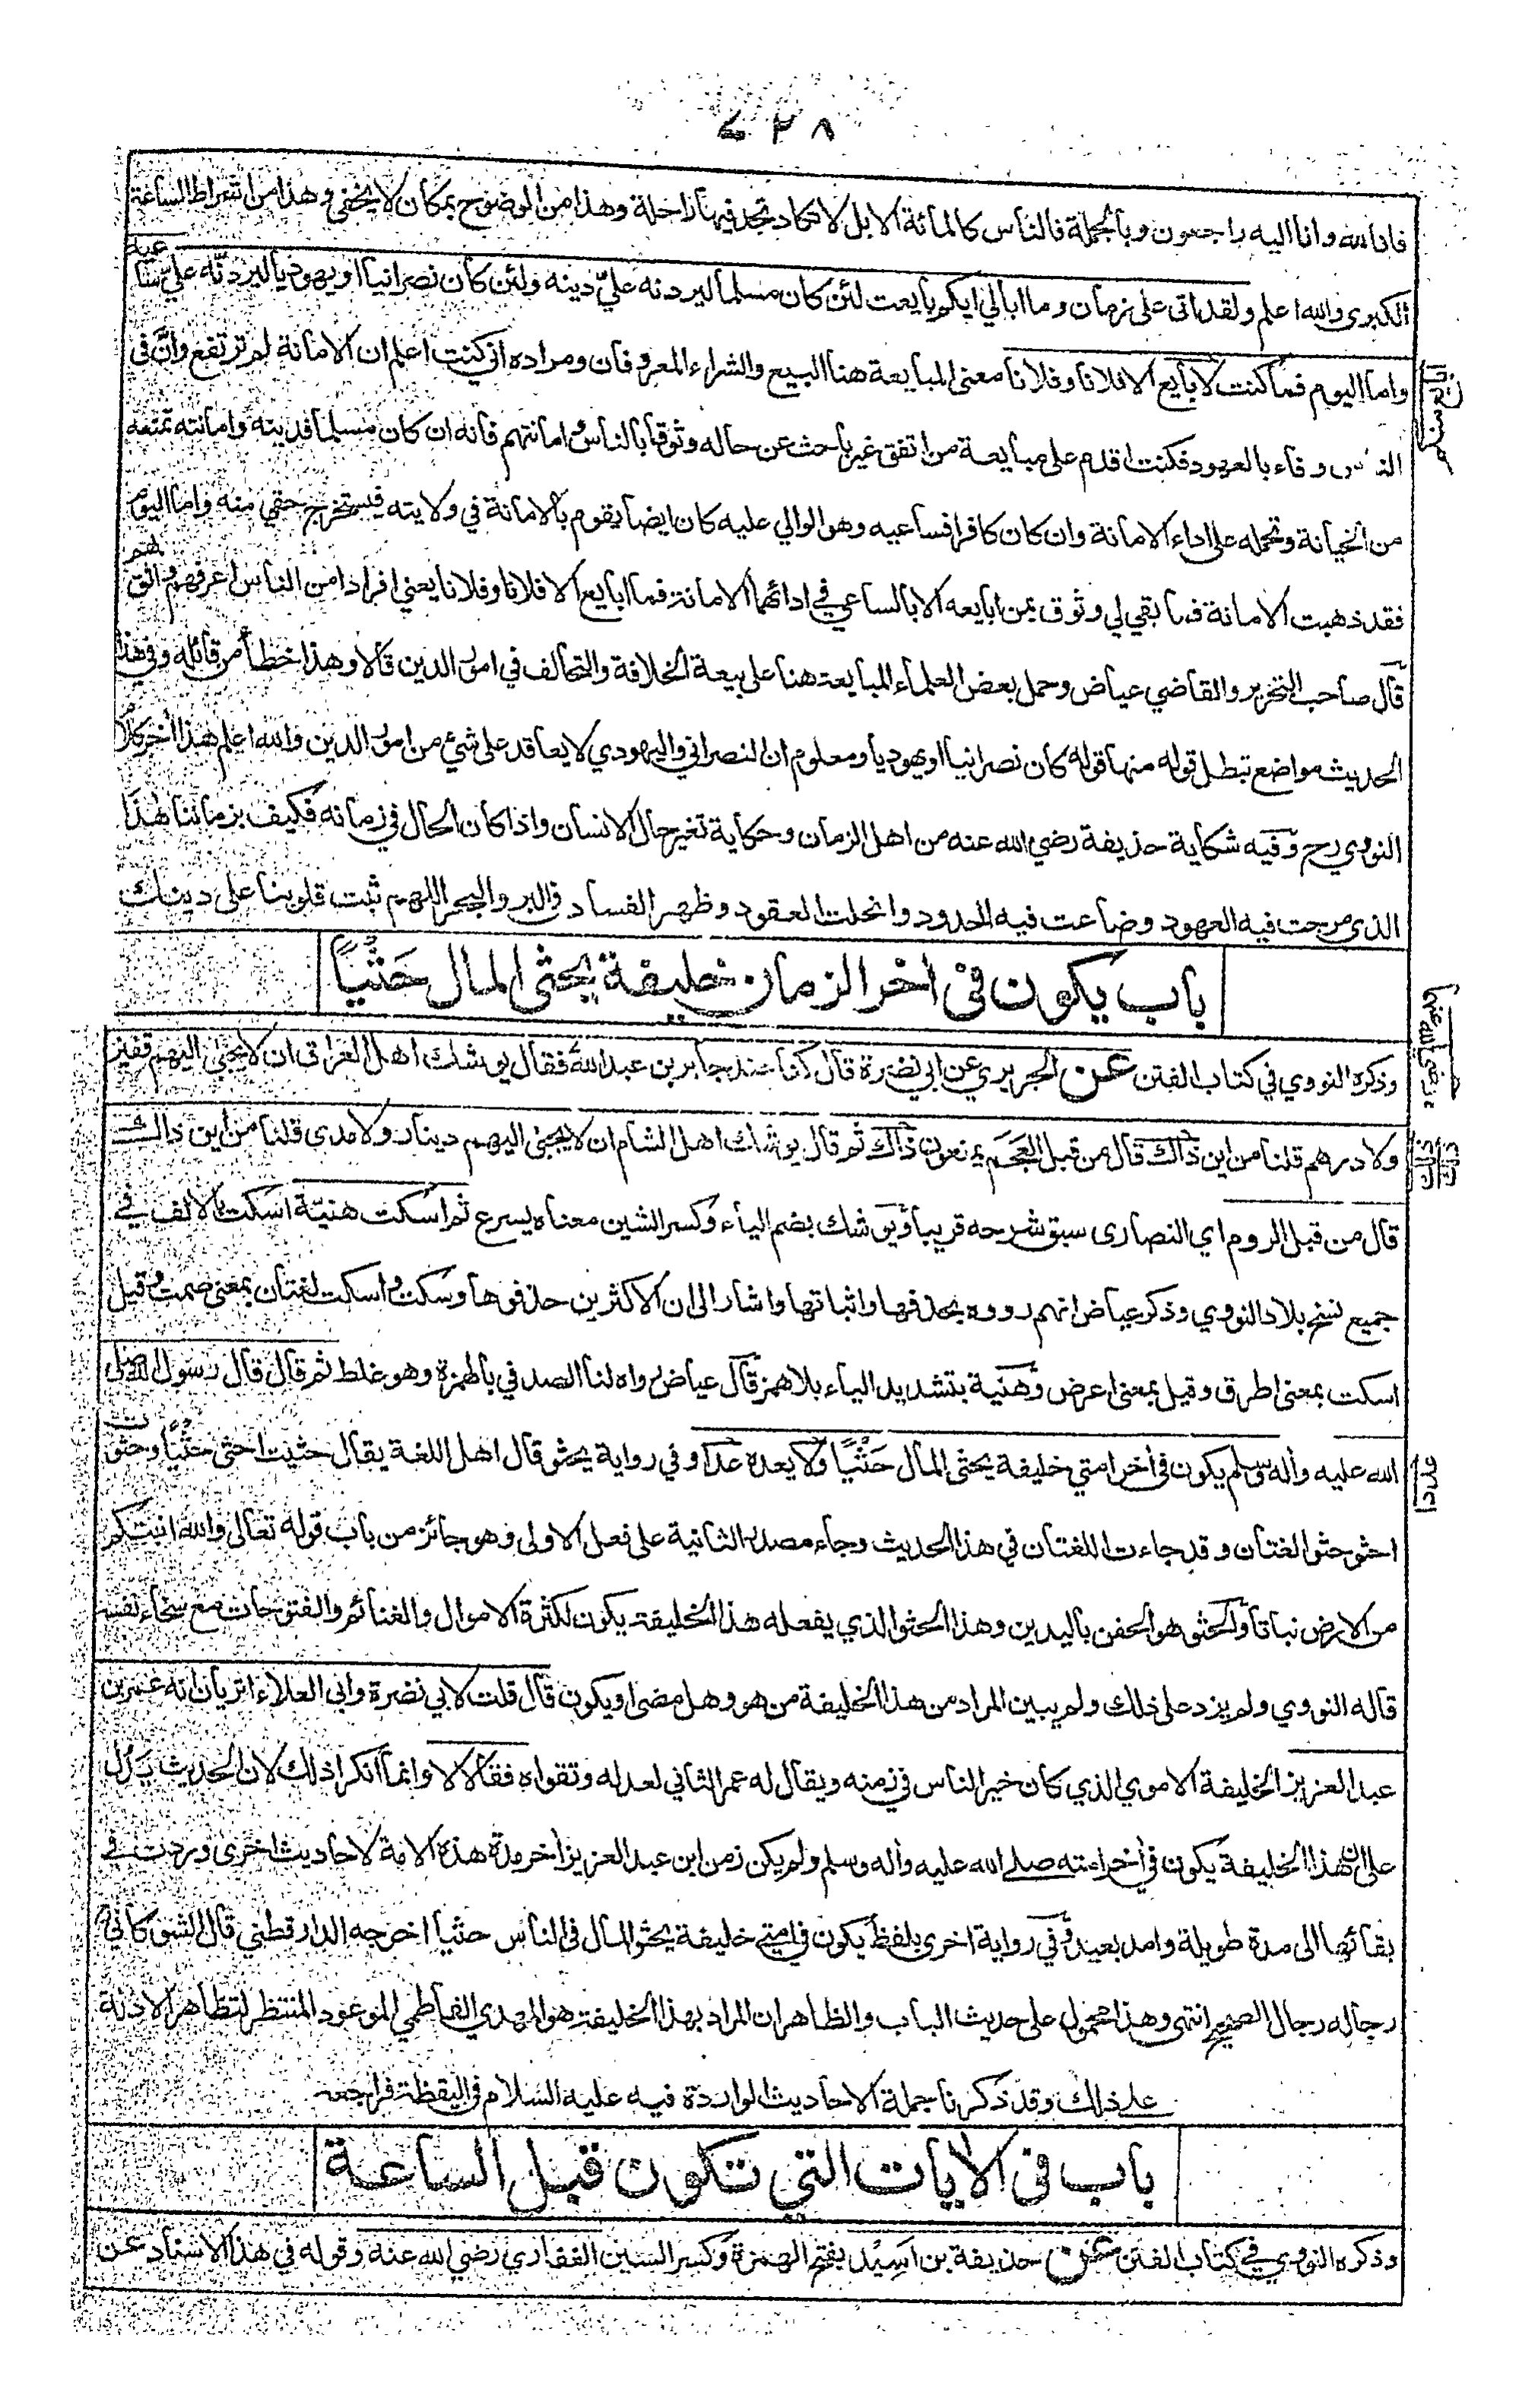 ٧٢٨
فانا لله وانا اليه راجعون وبالجملة فالناس كالمائة الابل لا تكاد تجد فيها راحلة وهذا من الوضوح بمكان لا يخفى وهذا من اشراط الساعة
الكبرى والله اعلم ولقد اتى على زمان وما ابالي ايكم بايعت لئن كان مسلما ليردنه عليّ دينه ولئن كان نصرانيا او يهوديا ليردنّه عليّ ساعيه
واما اليوم فما كنت لابايع الا فلانا وفلانا معنى المبايعة هنا البيع والشراء المعروفان ومراده اني كنت اعلم ان الامانة لم ترتفع وانّ في
الناس وفاء بالعهود فكنت اقدم على مبايعة من اتفق غير باحث عن حاله وثوقا بالناس وامانتهم فانه ان كان مسلما فدينه وامانته تمنعه
من الخيانة وتحمله على اداء الامانة وان كان كافرا فساعيه وهو الوالي عليه كان ايضا يقوم بالامانة في ولايته فيستخرج حقي منه واما اليوم
فقد ذهبت الامانة فما بقي لي وثوق بمن ابايعه الا بالساعي في ادائهما الامانة فما ابايع الا فلانا وفلانا يعني افرادا من الناس اعرفهم واثق بهم
قال صاحب التحرير والقاضي عياض وحمل بعض العلماء المبايعة هنا على بيعة الخلافة والتحالف في امور الدين قالا وهذا خطأ من قائله وفي هذا
الحديث مواضع تبطل قوله منها قوله كان نصرانيا او يهوديا ومعلوم ان النصراني واليهودي لا يعاقد على شيء من امور الدين والله اعلم هذا اخر كلام
النووي رح وفيه شكاية حذيفة رضي الله عنه من اهل الزمان وحكاية تغير حال الانسان واذا كان الحال في زمانه فكيف بزماننا هذا
الذي مرجت فيه العهود وضاعت فيه الحدود وانحلت العقود وظهر الفساد في البر والبحر اللهم ثبت قلوبنا على دينك
باب يكون في اخر الزمان خليفة يحثى المال حَثْيًا
وذكره النووي في كتاب الفتن عن الجريري عن ابي نضرة قال كنا عند جابر بن عبد الله فقال يوشك اهل العراق ان لا يجبى اليهم قفيز
ولا درهم قلنا من اين ذاك قال من قبل العجم يمنعون ذاك ثم قال يوشك اهل الشام ان لا يجبى اليهم دينار ولا مدى قلنا من اين ذالك
قال من قبل الروم اي النصارى سبق شرحه قريبا ويوشك بضم الياء وكسر الشين معناه يسرع ثم اسكت هنيّة اسكت بالالف في
جميع نسخ بلاد النووي وذكر عياض انهم رووه بحذفها واثباتها واشار الى ان الاكثرين حذفوها وسكت واسكت لغتان بمعنى صمت وقيل
اسكت بمعنى اطرق وقيل بمعنى اعرض وهنية بتشديد الياء بلا همز قال عياض رواه لنا الصدفي بالهمزة وهو غلط ثم قال قال رسول الله صلى
الله عليه واله وسلم يكون في اخر امتي خليفة يحثى المال حَثْيًا ولا يعده عدا وفي رواية يحثو قال اهل اللغة يقال حثيت احثى حثيا وحثوت
احثو حثوا لغتان وقد جاءت اللغتان في هذا الحديث وجاء مصدر الثانية على فعل الاولى وهو جائز من باب قوله تعالى والله انبتكم
من الارض نباتا والحثو هو الحفن باليدين وهذا الحثو الذي يفعله هذا الخليفة يكون لكثرة الاموال والغنائم والفتوحات مع سخاء نفسه
قاله النووي ولم يزد على ذلك ولم يبين المراد من هذا الخليفة من هو وهل مضى او يكون قال قلت لابي نضرة وابي العلاء اتريان انه عمر بن
عبد العزيز الخليفة الاموي الذي كان خير الناس في زمنه ويقال له عمر الثاني لعدله وتقواه فقالا لا وانما انكرا ذلك لان الحديث يدل
على ان هذا الخليفة يكون في اخر امته صلى الله عليه واله وسلم ولم يكن زمن ابن عبد العزيز اخر مدة هذه الامة لاحاديث اخرى وردت في
بقائها الى مدة طويلة وامد بعيد وفي رواية اخرى بلفظ يكون في امتي خليفة يحثو المال في الناس حثيا اخرجه الدارقطني قال الشوكاني
رجاله رجال الصحيح انتهى وهذا محمول على حديث الباب والظاهر ان المراد بهذا الخليفة هو المهدي الفاطمي الموعود المنتظر لتظاهر الادلة
على ذلك وقد ذكرنا جملة الاحاديث الواردة فيه عليه السلام في اليقظة فراجعه
باب في الايات التي تكون قبل الساعة
وذكره النووي في كتاب الفتن عن حذيفة بن اَسِيْد بفتح الهمزة وكسر السين الغفاري رضي الله عنه وقوله في هذا الاسناد عن